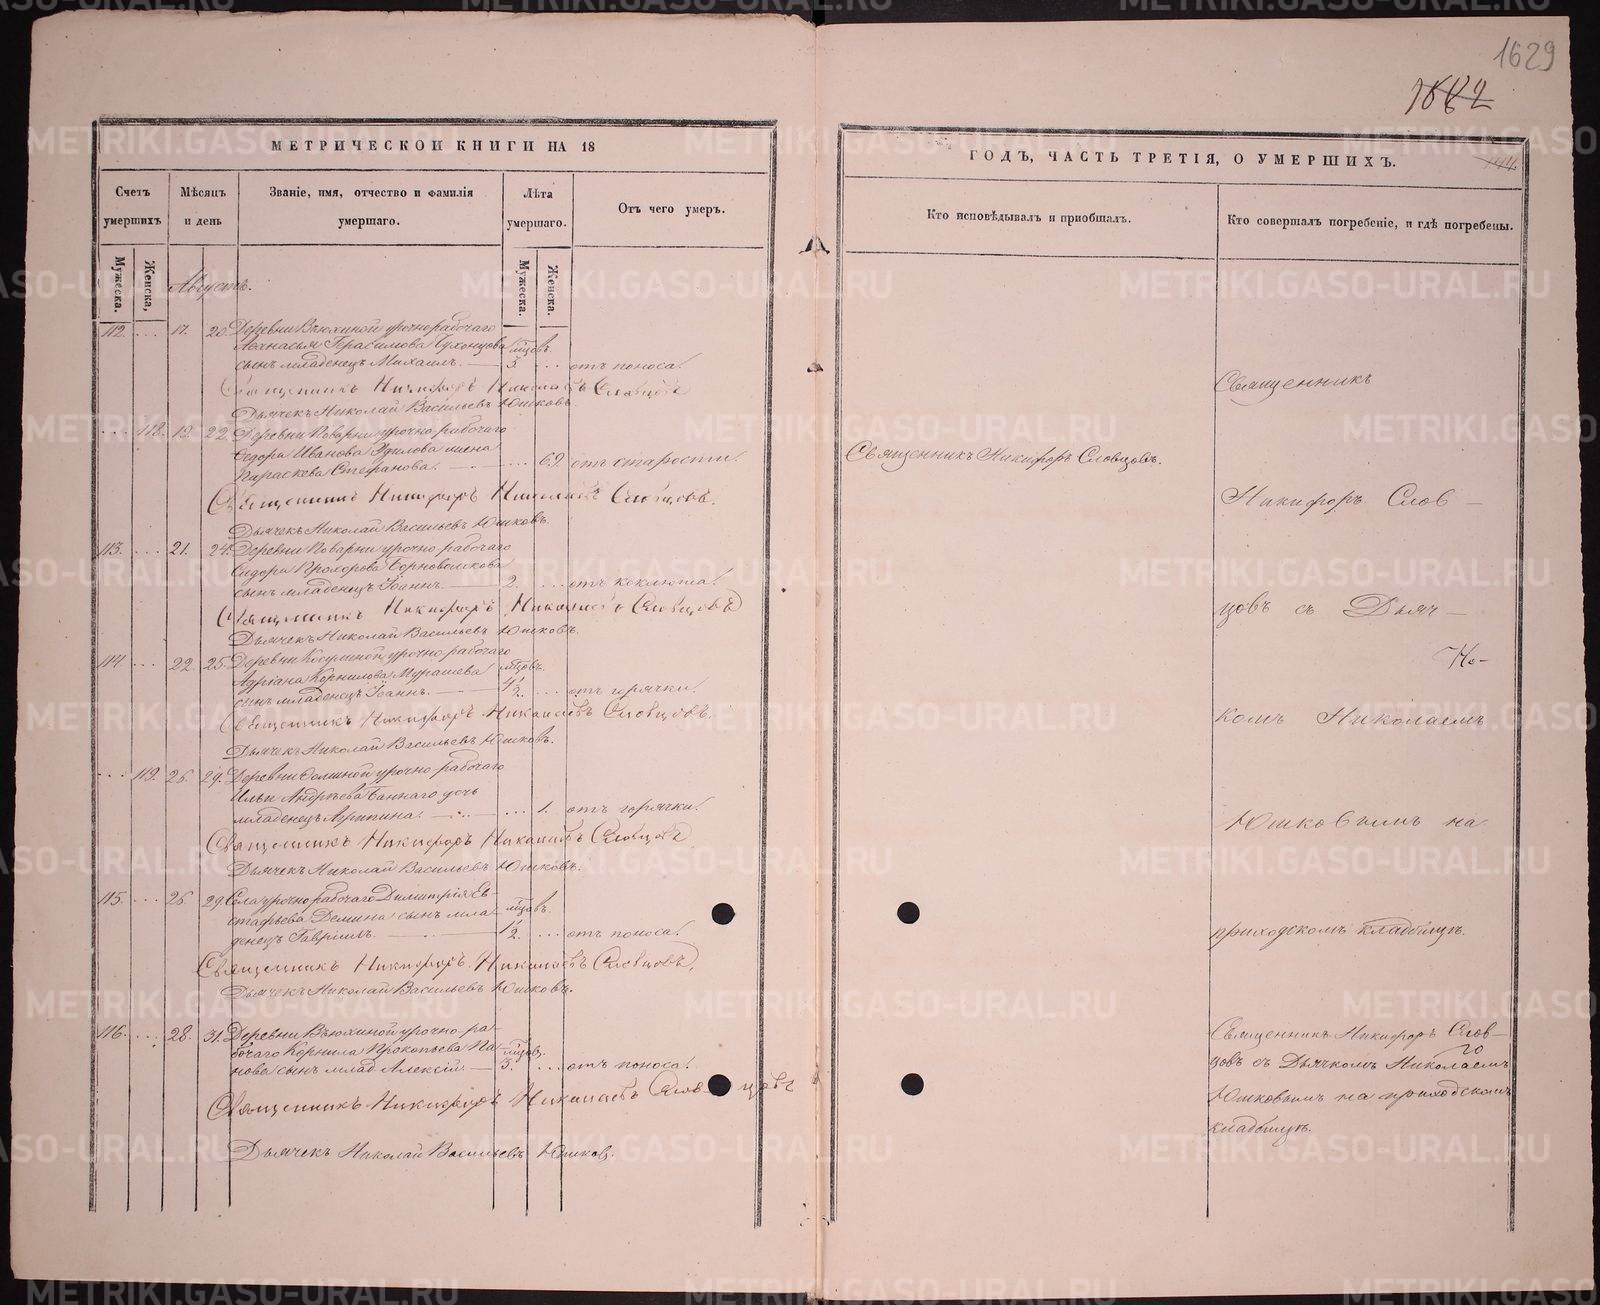 1629
1682
МЕТРИЧЕСКОИ КНИГИ НА 18
ГОДЪ, ЧАСТЬ ТРЕТІЯ, О УМЕРШИХЪ.
Счетъ умершихъ
Мѣсяцъ и день
Званіе, имя, отчество и фамилія умершаго.
Лѣта умершаго.
Отъ чего умеръ.
Кто исповѣдывалъ и пріобщалъ.
Кто совершалъ погребеніе, и гдѣ погребены.
Мужеска.
Женска,
Мужеска.
Женска.
Августъ.
112. ... 17. 20. Деревни Вьюхиной урочнорабочаго
Аѳанасья Герасимова Сухонцова мѣцовъ.
сынъ младенецъ Михаилъ. 3. ... отъ поноса.
Священникъ Никифоръ Николаевъ Словцовъ
Дьячекъ Николай Васильевъ Юшковъ.
... 118. 19. 22. Деревни Поварни урочно рабочаго
Ѳедора Иванова жена
Параскева Стефанова. ... 69. отъ старости.
Священникъ Никифоръ Николаевъ Словцовъ.
Дьячекъ Николай Васильевъ Юшковъ.
113. ... 21. 24. Деревни Поварни урочно рабочаго
Сидора Прохорова Борноволокова
сынъ младенецъ Іоаннъ. 2. ... отъ коклюша.
Священникъ Никифоръ Николаевъ Словцовъ
Дьячекъ Николай Васильевъ Юшковъ.
114. ... 22. 25. Деревни Косулиной урочно рабочаго
Адріана Корнилова Мурашева мѣцовъ.
сынъ младенецъ Іоаннъ. 1/2. ... отъ горячки.
Священникъ Никифоръ Николаевъ Словцовъ.
Дьячекъ Николай Васильевъ Юшковъ.
... 119. 26. 29. Деревни урочно рабочаго
Ильи Андреева Баннаго дочь
младенецъ Агрипина. ... 1. отъ горячки.
Священникъ Никифоръ Николаевъ Словцовъ
Дьячекъ Николай Васильевъ Юшковъ.
115. ... 26. 29. Села урочнорабочаго Димитрія Ев-
стафьева Демина сынъ мла- мѣцовъ.
денецъ Гавріилъ. 1/2. ... отъ поноса.
Священникъ Никифоръ Николаевъ Словцовъ,
Дьячекъ Николай Васильевъ Юшковъ.
116. ... 28. 31. Деревни Вьюхиной урочно ра-
бочаго Корнила Прокопьева Па- мѣцов.
нова сынъ млад. Алексій. 3. ... отъ поноса.
Священникъ Никифоръ Николаевъ Словцовъ
Дьячекъ Николай Васильевъ Юшков.
Священникъ Никифоръ Словцовъ.
Священникъ
Никифоръ Слов-
цовъ съ Дьяч-
Но-
комъ Николаемъ
Юшковымъ на
приходскомъ кладбищѣ.
Священникъ Никифоръ Слов-
цовъ съ Дьячкомъ Николаемъ
Юшковымъ на приходскомъ
кладбищѣ.
METRIKI.GASO-URAL.RU